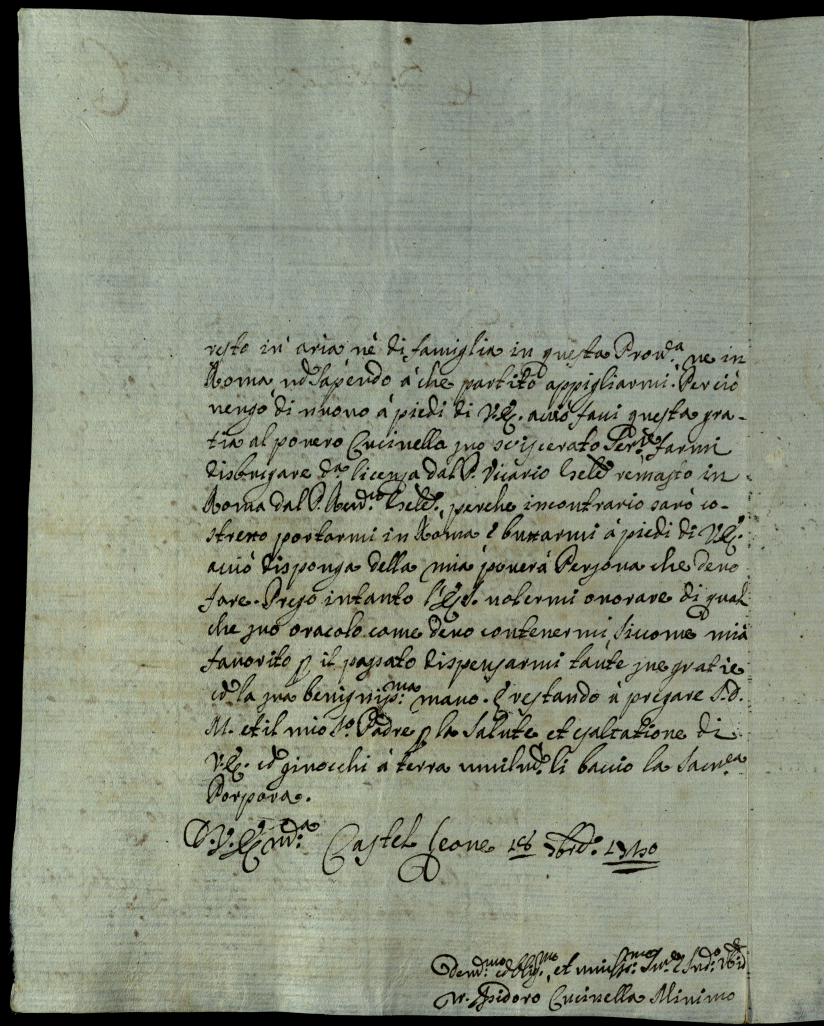 resto in aria nè di famiglia in questa Prou.a ne in
Roma nõ sapendo à che partito appigliarmi. Perciò
uengo di nuouo à piedi di V.E. acciò facci questa gra-
tia al pouero Cucinella suo sviscerato Ser.re farmi
disbrigare d.a licenza dal P. Vicario Gñle remasto in
Roma dal P. Reu.mo Gñle, perche incontrario sarò co-
stretto portarmi in Roma è buttarmi à piedi di V.E.
acciò disponga della mia pouera Persona che deuo
fare. Prego intanto l'E.V. uolermi onorare di qual
che suo oracolo come deuo contenermi, siccome m'hà
fauorito p il passato dispensarmi tante sue gratie
cõ la sua benigniss.ma mano. E restando à pregare S.D.
M. et il mio S.to Padre p la Salute et esaltatione di
V.E. cõ ginocchi à terra umilm.te li baccio la Sacra
Porpora.
D. V. Em.za Castel Leone 18 9bre 1740
Deu.mo Obblig.mo et umiliss.mo Ser.e
Fr. Isidoro Cucinella Minimo